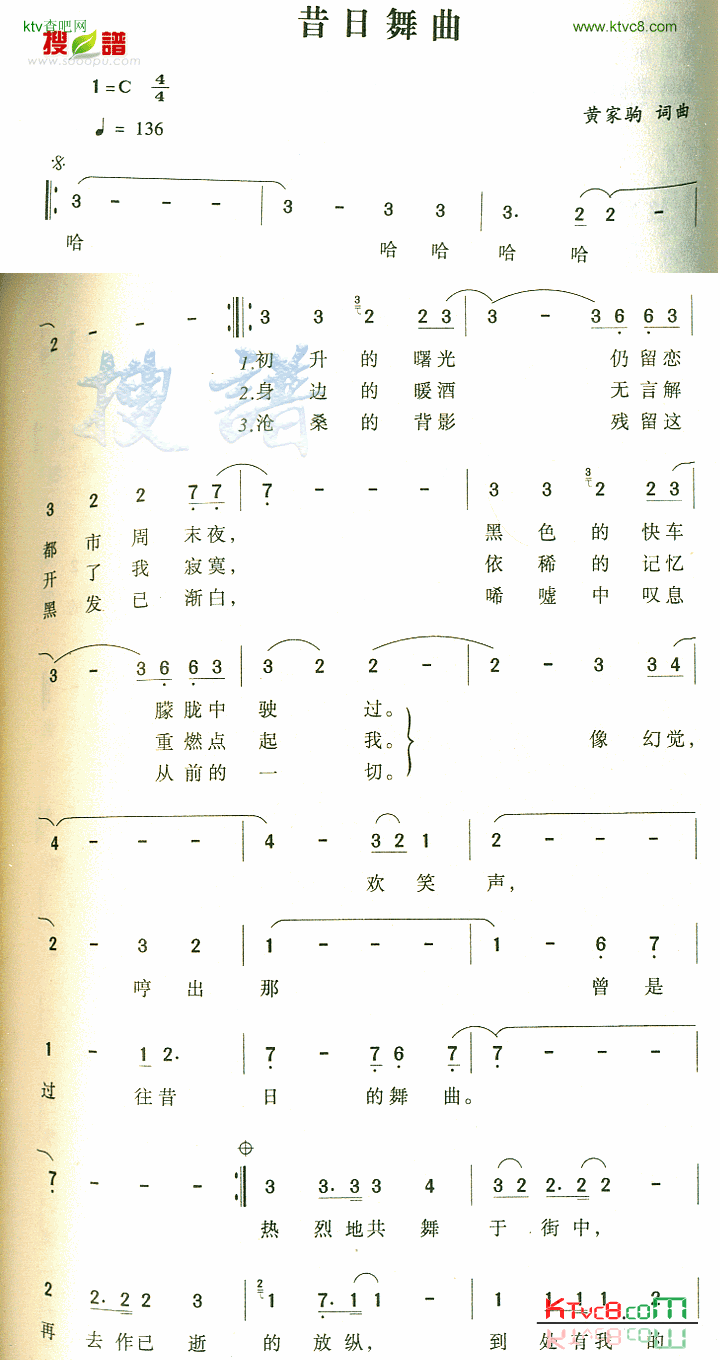 ktv查吧网
搜谱
www.sooopu.com
昔日舞曲
www.ktvc8.com
1=C 4/4
♩= 136
黄家驹 词曲
3 - - - 3 - 3 3 3. 2 2 -
哈 哈 哈 哈 哈
2 - - - 3 3 3 2 2 3 3 - 3 6 6 3
1.初 升 的 曙 光 仍 留 恋
2.身 边 的 暖 酒 无 言 解
3.沧 桑 的 背 影 残 留 这
搜 谱
3 2 2 7 7 7 - - - 3 3 3 2 2 3
都 市 周 末 夜, 黑 色 的 快 车
开 了 我 寂 寞, 依 稀 的 记 忆
黑 发 已 渐 白, 唏 嘘 中 叹 息
3 - 3 6 6 3 3 2 2 - 2 - 3 3 4
朦 胧 中 驶 过。
重 燃 点 起 我。 像 幻 觉,
从 前 的 一 切。
4 - - - 4 - 3 2 1 2 - - -
欢 笑 声,
2 - 3 2 1 - - - 1 - 6 7
哼 出 那 曾 是
1 - 1 2. 7 - 7 6 7 7 - - -
过 往 昔 日 的 舞 曲。
7 - - - 3 3. 3 3 4 3 2 2. 2 2 -
热 烈 地 共 舞 于 街 中,
2 2. 2 2 3 2 1 7. 1 1 - 1 1 1 2
再 去 作 已 逝 的 放 纵, 到 处 有 我 的
KTvc8.com